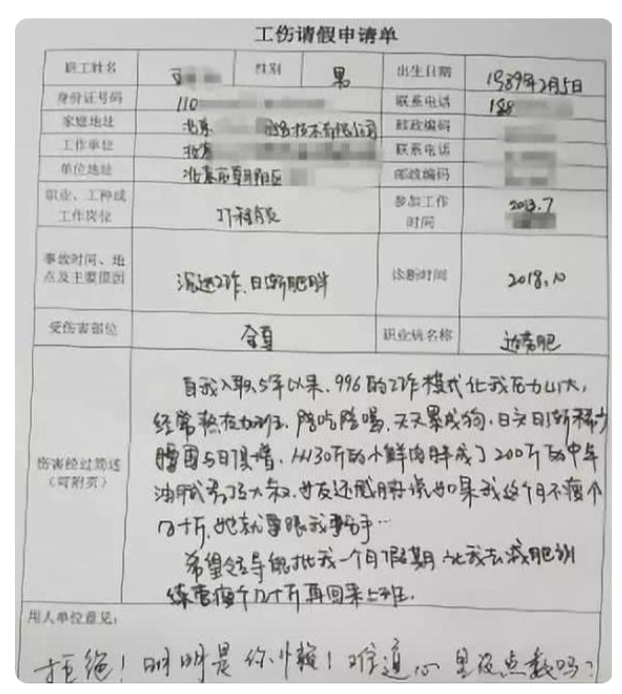 工伤请假申请单
职工姓名 性别 男 出生日期 1989年2月5日
身份证号码 110 联系电话 188
家庭地址 北京 技术有限公司 邮政编码
工作单位 北京 联系电话
单位地址 北京市朝阳区 邮政编码
职业、工种或工作岗位 工程师 参加工作时间 2013.7
事故时间、地点及主要原因 沉迷工作,日渐肥胖 诊断时间 2018.10
受伤害部位 全身 职业病名称 过劳肥
伤害经过简述(可附页)
自我入职5年以来,996的工作模式让我压力山大,
经常熬夜加班,陪吃陪喝,天天累成狗,日渐稀少
腰围与日俱增,从130斤的小鲜肉胖成了200斤的中年
油腻大叔,女友还威胁说如果我这个月不瘦个
几十斤,她就要跟我分手…
希望领导能批我一个月假期让我去减肥训
练营瘦个几十斤再回来上班.
用人单位意见:
拒绝!明明是你 !难道心里没点数吗?